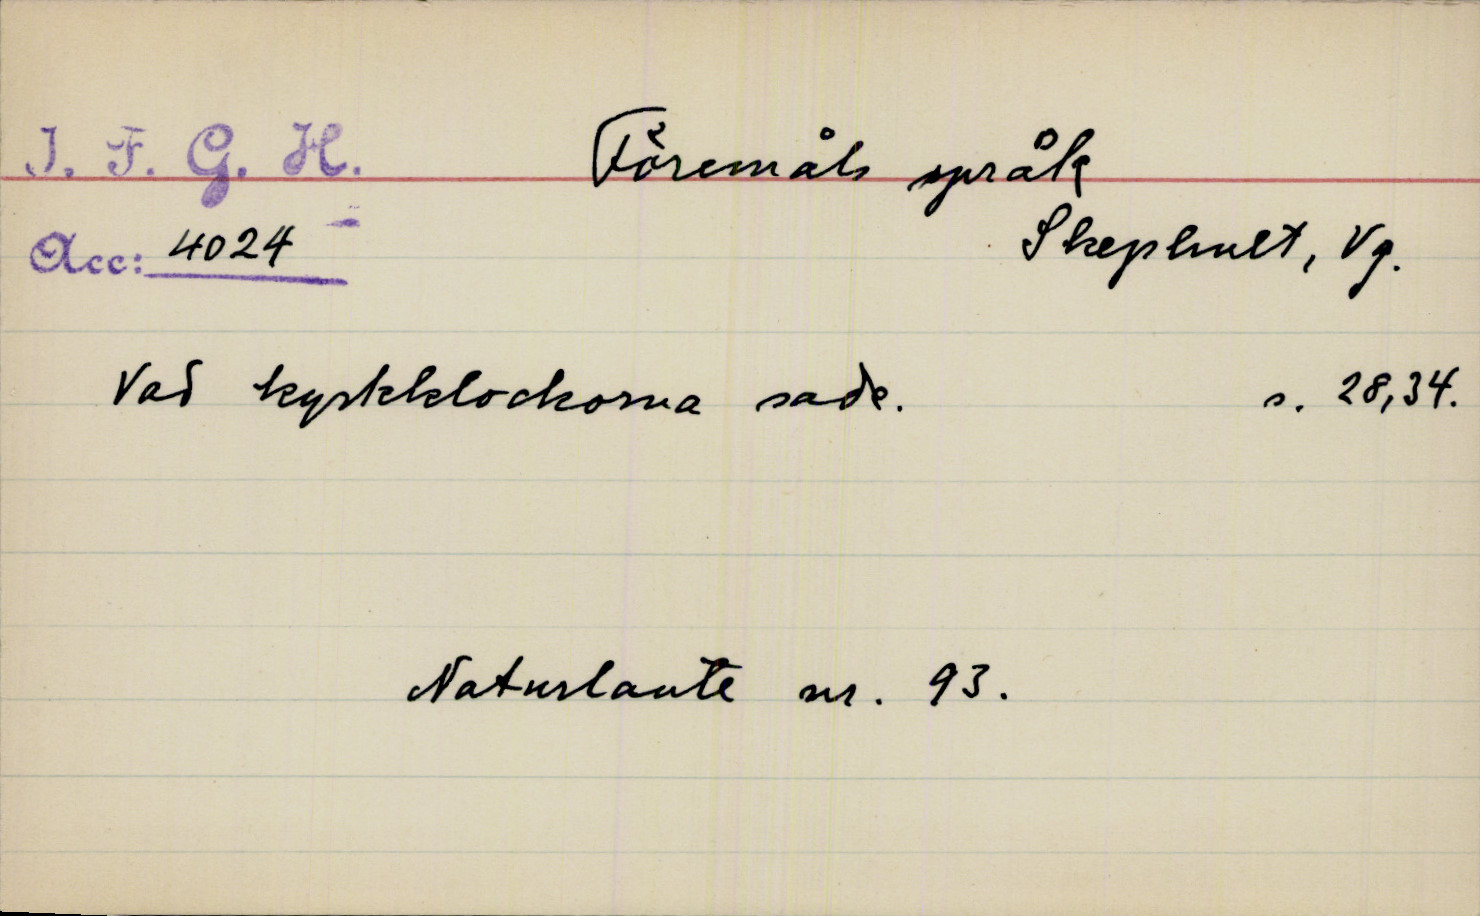 I. F. G. H.
Föremåls språk
Acc: 4024
Skephult, Vg.
Vad kyrkklockorna sade. s. 28,34.
Naturlaute nr. 93.